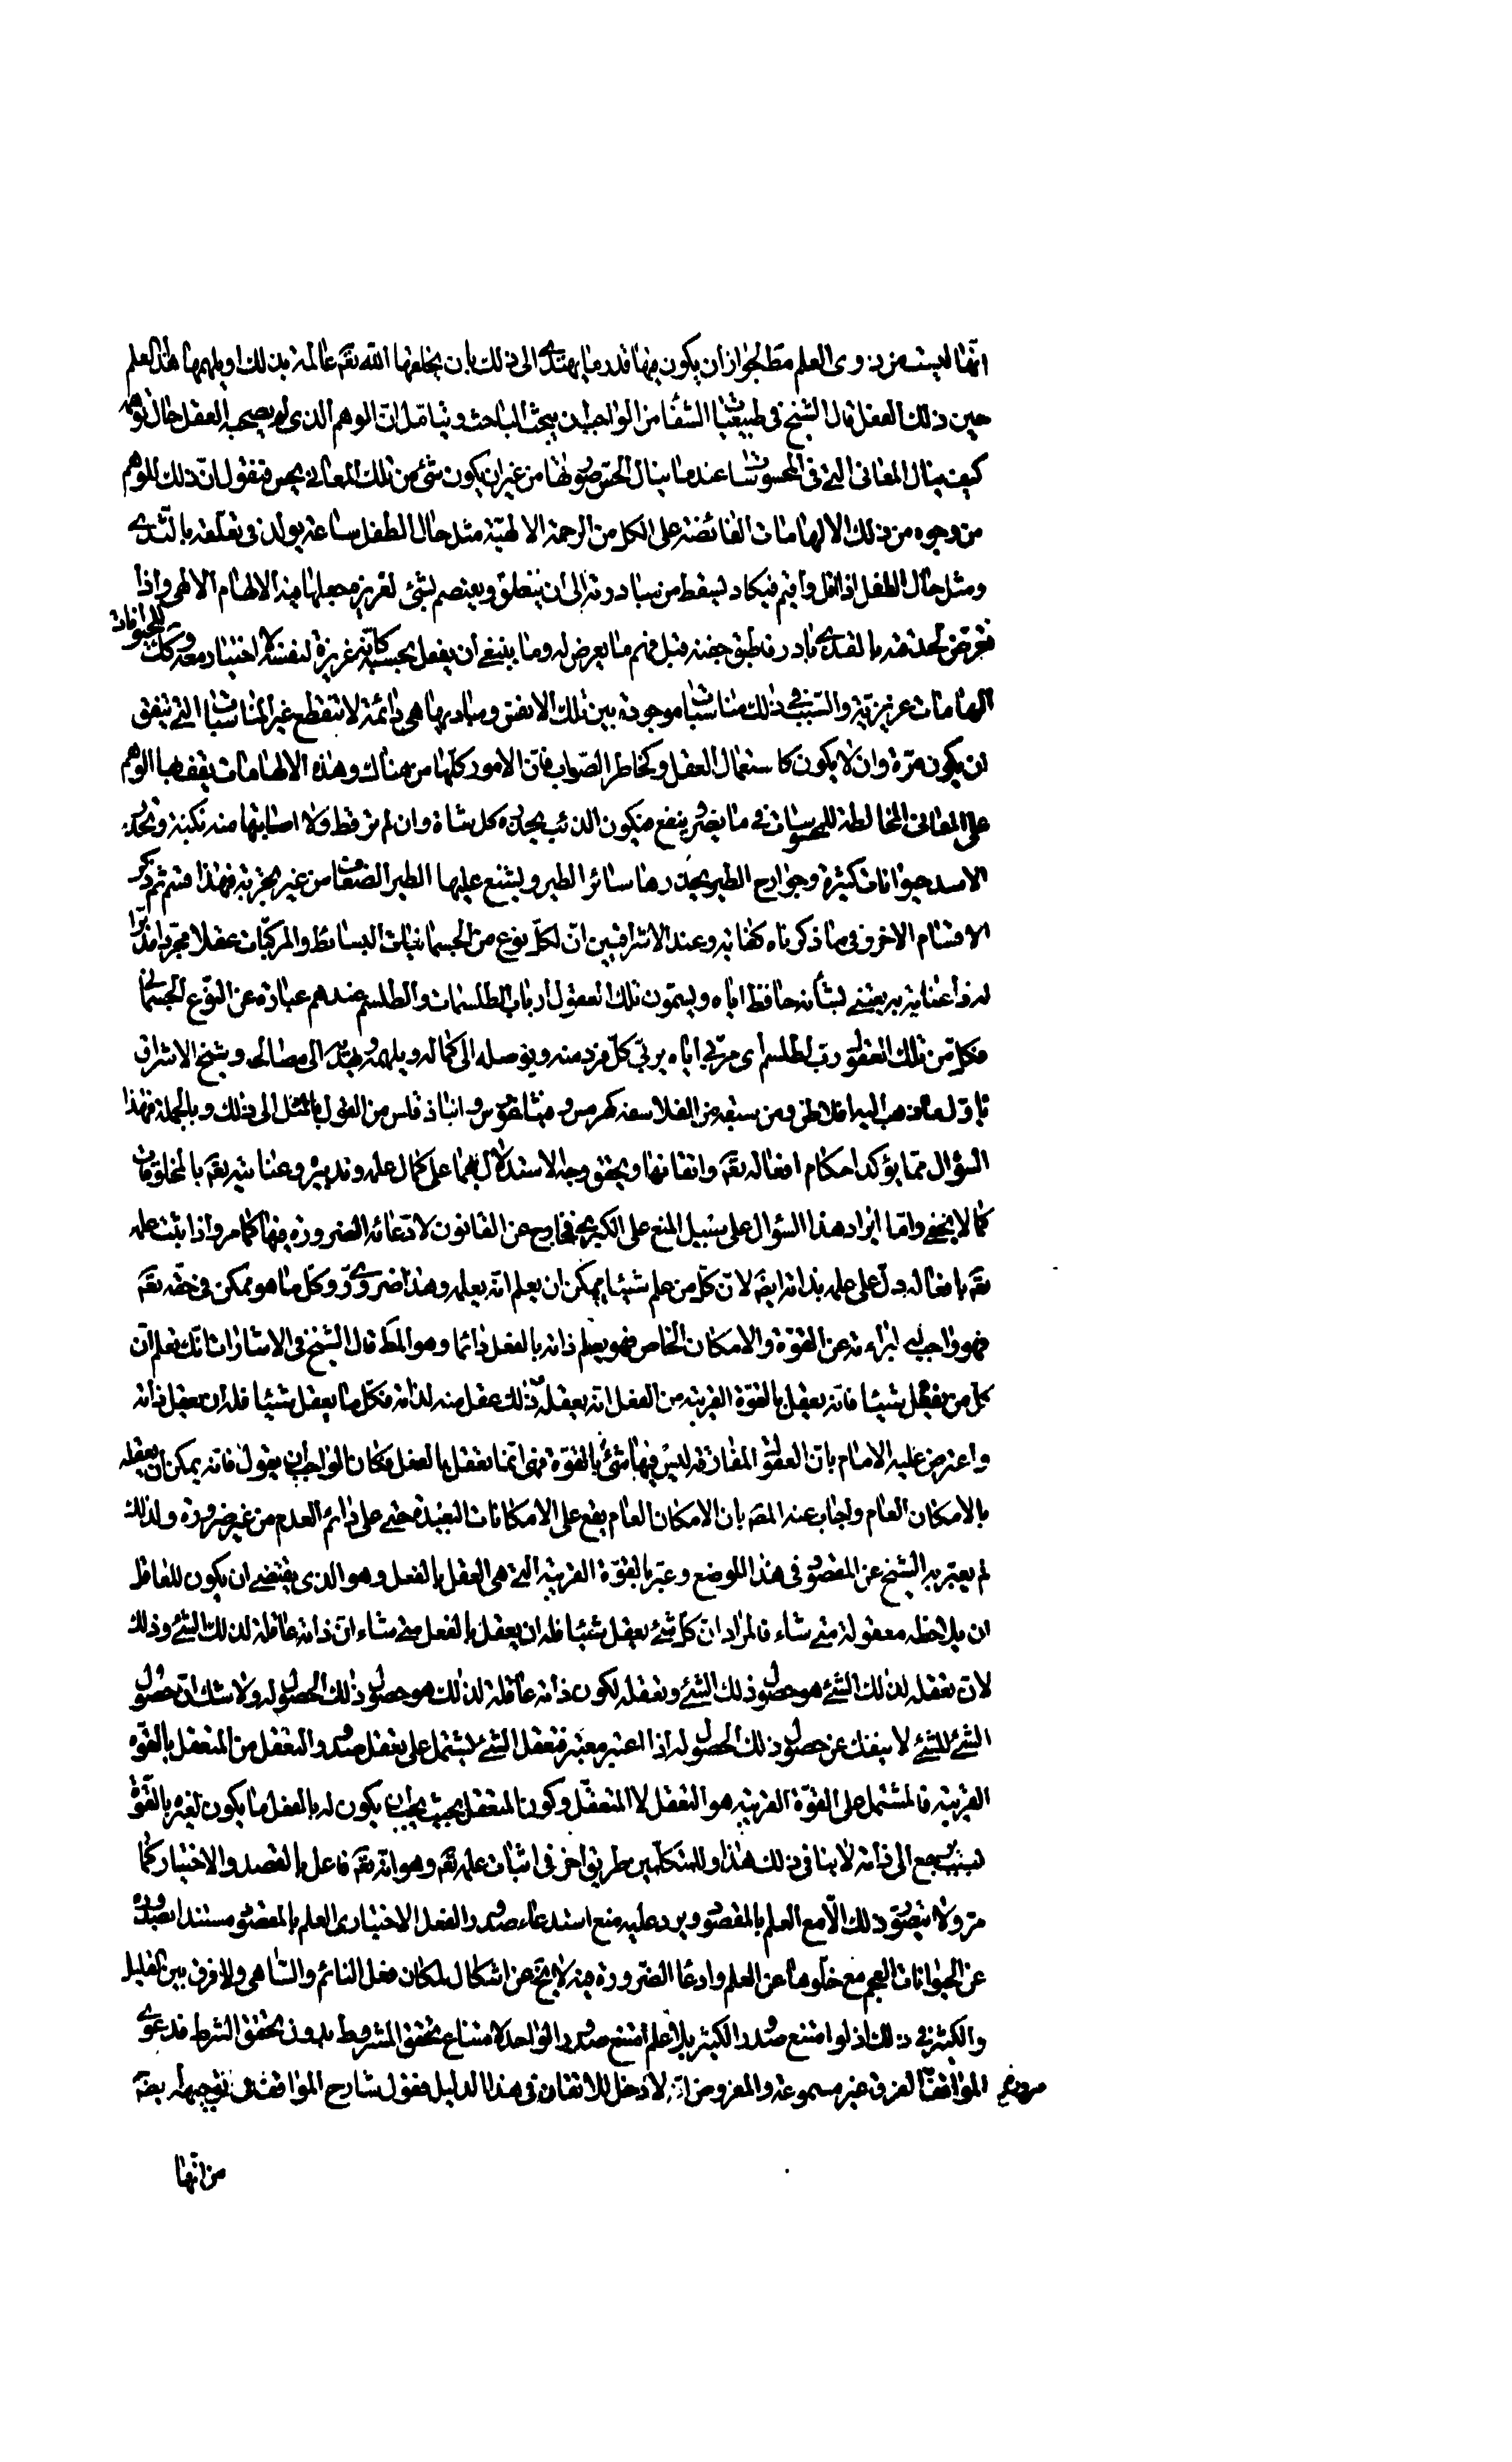 انّها ليست من ذوى العلم مطلقا لجواز ان يكون فيها قدر ما يهتدى الى ذلك بان يخلقها الله تعالى عالمة بذلك او يلهمها هذا العلم
حين ذلك الفعل قال الشيخ فى طبيعيات الشفا من الواجب ان يبحث الباحث و يتامّل انّ الوهم الذى لم يصحبه العقل حال توهمه
كيف ينال المعانى التى فى المحسوسات عند ما ينال الحس صورتها من غير ان يكون شئ من تلك المعانى يحس فنقول انّ ذلك للوهم
من وجوه من ذلك الالهامات الفائضة على الكل من الرحمة الالهيّة مثل حال الطفل ساعة يولد فى تعلّقه بالثدى
و مثل حال الطفل اذا اقل و اقيم فيكاد يسقط من مبادرته الى ان يتعلق و يعتصم بشئ لغريزة جعلها فيه الالهام الالهى و اذا
تعرّض لحدقته بالقذى بادر فاطبق جفنه قبل فهم ما يعرض له و ما ينبغى ان يفعل بحسبه كانّه غريزة لنفسه لا اختيار معه و كذلك للحيوانات
الهامات غريزيّة و السبب فى ذلك مناسبات موجودة بين تلك الانفس و مباديها هى دائمة لا تنقطع غير المناسبات التى يتفق
ان يكون مرّة و ان لا يكون كاستعمال العقل و كخاطر الصّواب فانّ الامور كلّها من هناك و هذه الالهامات يقف بها الوهم
على المعانى المخالطة للمحسوسات فى ما يضر و ينفع فيكون الذئب يحذره كل شاة و ان لم تره قط و لا اصابتها منه نكبة و تحذر
الاسد حيوانات كثيرة و جوارح الطير يحذرها سائر الطير و يشنع عليها الطير الضعاف من غير تجربة فهذا قسم ثم ذكر
الاقسام الاخر و فى ما ذكرناه كفاية و عند الاشراقيين انّ لكلّ نوع من الجسمانيات البسائط و المركبّات عقلا مجرّدا مدبّرا
له ذا عناية به يعتنى بشأنه حافظ ايّاه و يسمّون تلك العقول ارباب الطلسمات و الطلسم عندهم عبارة عن النوّع الجسمانى
فكلّ من تلك العقول ربّ لطلسم اى مربّى ايّاه يربّى كلّ فرد منه و يوصله الى كماله و يلهمه و يهديه الى مصالحه و شيخ الاشراق
ياوّل ما ذهب اليه افلاطن و من سبقه من الفلاسفة كهرمس و فيثاغورس و انباذقلس من القول بالمثل الى ذلك و بالجملة فهذا
السؤال ممّا يؤكد احكام افعاله تعالى و اتقانها و يحقق وجه الاستدلال بهما على كمال علمه و تدبيره و عنايته تعالى بالمخلوقات
كما لا يخفى و امّا ايراد هذا السؤال على سبيل المنع على الكبرى فخارج عن القانون لادّعائه الضرورة فيها كما مر و اذا ثبت علمه
تقه بافعاله دلّ على علمه بذاته ايضه لانّ كلّ من علم شيئا يمكن ان يعلم انّه يعلمه و هذا ضرورى و كلّ ما هو ممكن فى حقّه تقه
فهو واجب له لبراءته عن القوّة و الامكان الخاص فهو يعلم ذاته بالفعل دائما و هو المط قال الشيخ فى الاشارات انّك تعلم انّ
كلّ من يعقل شيئا فانّه يعقل بالقوّة القريبة من الفعل انّه يعقله و ذلك عقل منه لذاته فكلّ ما يعقل شيئا فله ان يعقل ذاته
و اعترض عليه الامام بانّ العقول المفارقة ليس فيها شئ بالقوّة فهى انّما تعقل بالفعل فكان الواجب ان يقول فانه يمكن ان يعقله
بالامكان العام و اجاب عنه المصه بان الامكان العام يقع على الامكانات البعيدة حتى على دائم العدم من غير ضرورة و لذلك
لم يعبّر به الشيخ عن المقصود فى هذا الموضع و عبّر بالقوّة القريبة التى هى العقل بالفعل و هو الذى يقتضى ان يكون للعاقل
ان يلاحظ معقوله متى شاء فالمراد انّ كلّ شئ يعقل شيئا فله ان يعقل بالفعل متى شاء انّ ذاته عاقلة لذلك الشئ و ذلك
لانّ تعقله لذلك الشئ هو حصول ذلك الشئ و تعقله لكون ذاته عاقلة لذلك هو حصول ذلك الحصول له و لا شك انّ حصول
الشئ للشئ لا ينفك عن حصول ذلك الحصول له اذا اعتبر معتبر فتعقل الشئ يشتمل على تعقل صدور التعقل من المتعقل بالقوّة
القريبة فالمشتمل على القوّة القريبة هو التعقل لا المتعقّل و كون المتعقل بحيث يجب ان يكون له بالفعل ما يكون لغيره بالقوّة
لسبب يرجع الى ذاته لا ينافى ذلك هذا و للمتكلّمين طريق اخر فى اثبات علمه تقه و هو انّه تقه فاعل بالقصد و الاختيار كما
مرّ و لا يتصوّر ذلك الّا مع العلم بالمقصود و يرد عليه منع استدعاء صدور الفعل الاختيارى العلم بالمقصود مستندا بصدوره
عن الحيوانات العجم مع خلّوها عن العلم و ادعا الضرورة فيه لا يخ عن اشكال لمكان فعل النائم و السّاهى و لا فرق بين القليل
و الكثير فى ذلك اذ لو امتنع صدور الكثير بلا علم امتنع صدور الواحد لامتناع تحقق المشروط بدون تحقق الشرط فدعوى
المواقف الفرق غير مسموعة و المفروض انّه لا دخل للاتقان فى هذا الدليل فقول شارح المواقف فى توجيهه
من انّها